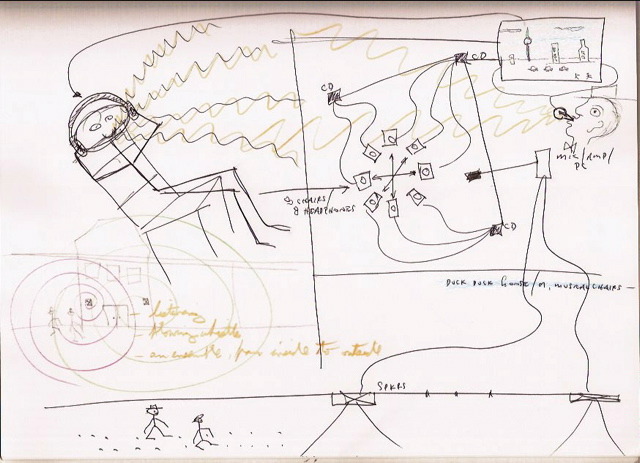 CD
CD
mic/AMP/
PC
8 CHAIRS/
8 HEADPHONES
CD
DUCK DUCK GOOSE / OR, MUSICAL CHAIRS -
- listening
- blowing whistle
- an ensemble, from inside to outside
SPKRS